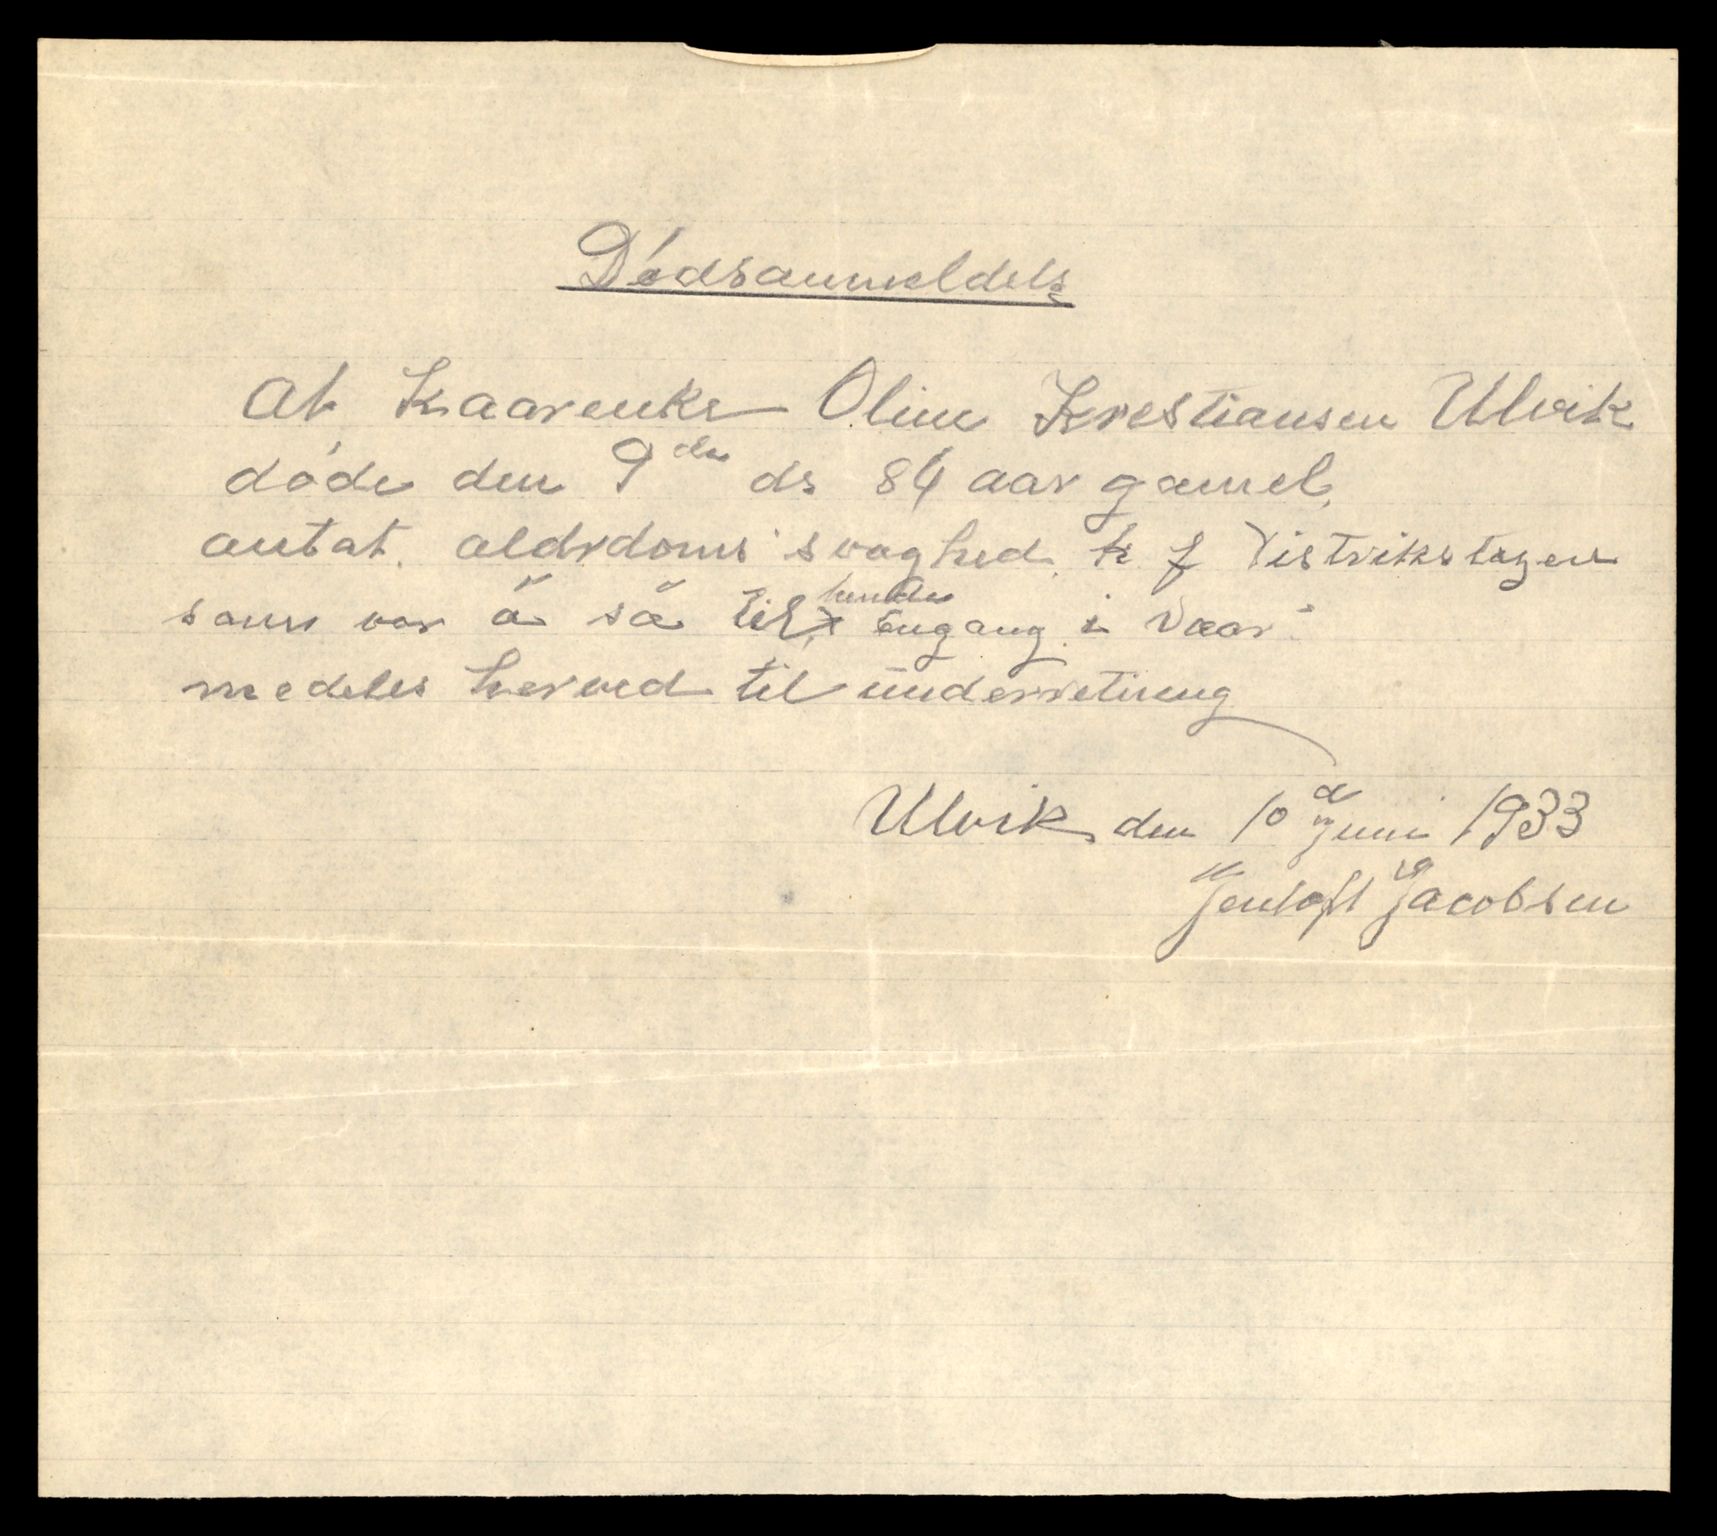 Dødsanmeldels
At Kaarenke Oline Krestiansen Ulvik
døde den 9de ds 84 aar gamel,
antat. aldrdoms svaghed. k f Distrikstagen
som var å så til hende Engang i Vaar
medeles herved til underretning
Ulvik den 10d Juni 1933
Gentoft Jacobsen